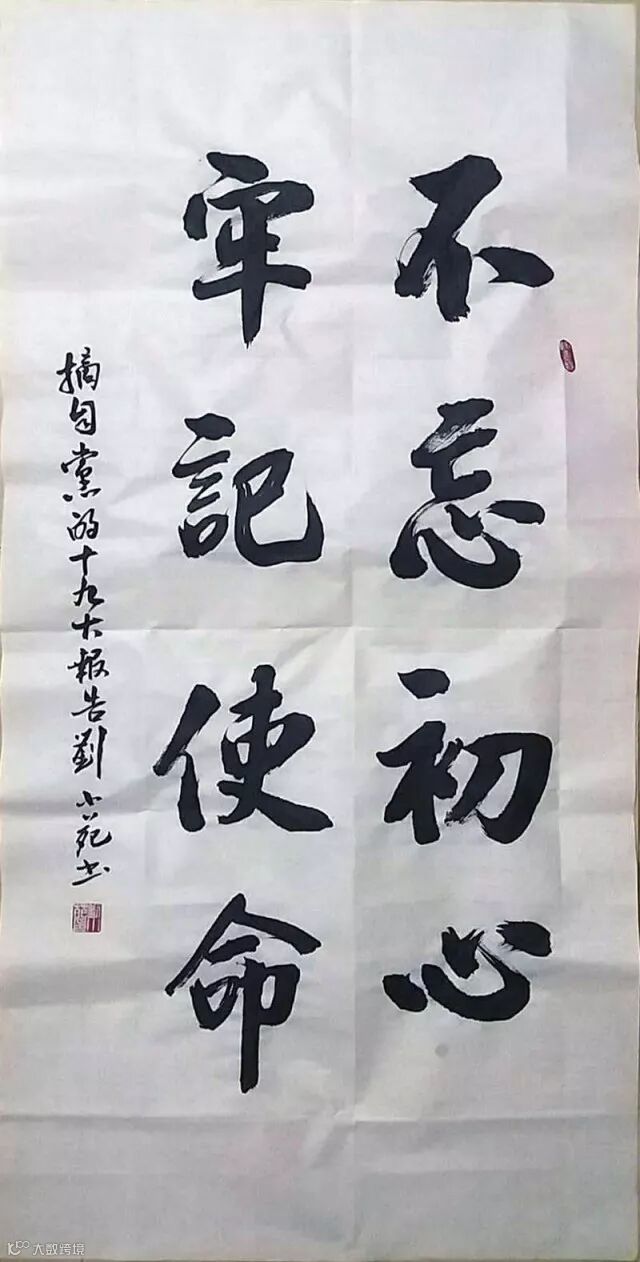 不忘初心
牢記使命
摘自黨的十九大报告劉小苑书
大数跨境